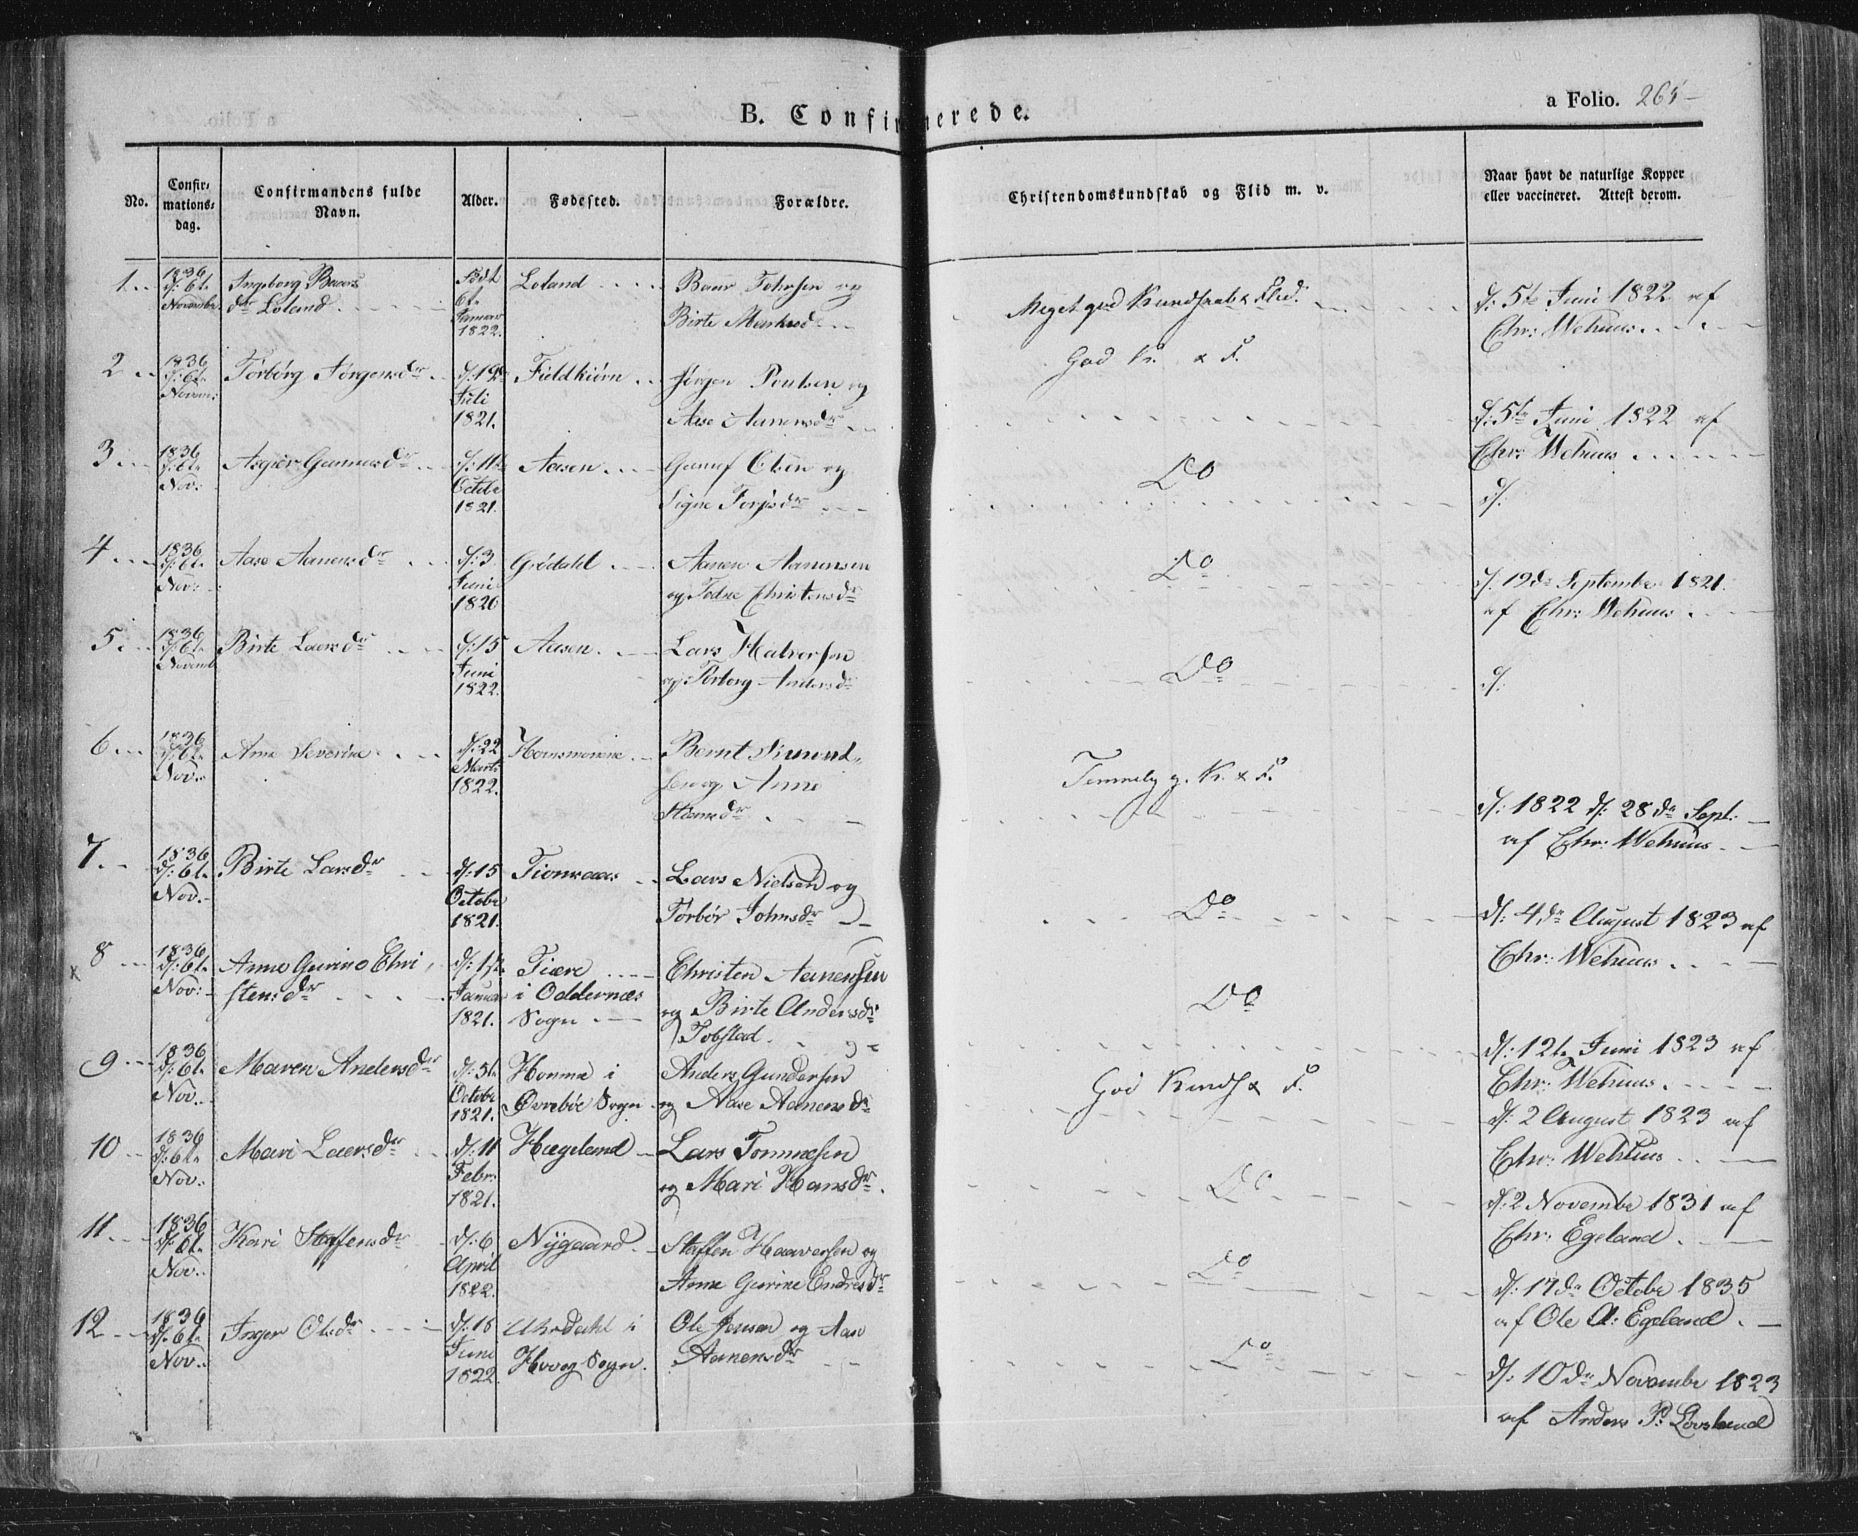 B. Confirmerede.
a Folio. 265
No.
Confir-
mations-
dag.
Confirmandens fulde
Navn.
Alder.
Fødested.
Forældre.
Christendomskundskab og Flid m. v.
Naar havt de naturlige Kopper
eller vaccineret. Attest derom.
1
1836
d: 6te
Novembr
Ingeborg
dr Loland
Født
6te
Januar
1822.
Loland
og
Birte
Meget god Kundskab & Flid.
d: 5te Juni 1822 af
Chr: Wehuus
2
1836
d: 6te
Novem:
Torborg Jørgensdr
d: 19de
Juli
1821.
Fieldkiørn
Jørgen Poulsen og
Aase Aanensdr
God K. & F.
d: 5te Juni 1822 af
Chr: Wehuus
3
1836
d: 6te
Nov:
Gunnufsdr
d: 11te
Octobr
1821.
Aasen
Gunnuf Olsen og
Signe
Do
d:
4
1836
d: 6te
Nov:
Aase Aanensdr
d: 3
Juni
1820
Grødahl
Aanen Aanensen
og Christensdr
Do
d: 19de Septembr 1821.
af Chr: Wehuus
5
1836
d: 6te
Novemb
Birte Larsdr
d: 15
Juni
1822.
Aasen
Lars Halvorsen
og Torborg Andersdr
Do
d:
6
1836
d: 6te
Nov:
Ane Severine
d: 22
Marts
1822.
Bernt
sen og Anne
Hansdr
Temmelig g. K. & F.
d: 1822 d: 28de Sept:
af Chr: Wehuus
7
1836
d: 6te
Nov.
Birte Larsdr
d: 15
Octobr
1821.
Tionnaas
Lars Nielsen og
Torbør Johnsdr
Do
d: 4de August 1823 af
Chr: Wehuus
x 8
1836
d: 6te
Nov:
Anne Gurine Chri
stensdr
d: 1ste
Januar
1821.
Tiære
i Oddernæs
Sogn
Christen Aanensen
og Birte Andersdr
Tobstad.
Do
d: 12te Juni 1823 af
Chr: Wehuus
9
1836
d: 6te
Nov.
Maren Andersdr
d: 5te
Octobr
1821.
Homme i
Øvrebøe Sogn
Anders Gundersen
og Aase Aanensdr
God Kundsk & F.
d: 2 August 1823 af
Chr: Wehuus
10
1836
d: 6te
Nov:
Mari Larsdr
d: 11
Febr:
1821.
Hægeland
Lars Tommesen
og Mari Hansdr.
Do
d: 2 Novembr 1831 af
Chr: Egeland
11
1836
d: 6te
Nov.
Kari Staffensdr
d: 6
April
1822.
Nygaard
Staffen Haaversen og
Anne Gurine Endresdr
Do
d: 17de Octobr 1835
af Ole A: Egeland
12
1836
d: 6te
Nov.
Inger Olsdr
d: 18
Juni
1822.
Uhrdahl i
Hvveg Sogn.
Ole Jensen og Aase
Aanensdr
Do
d: 10de Novembr 1823
af Anders P: Lovsland